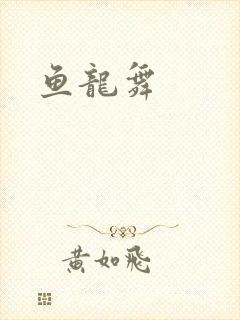 鱼龍舞
黄如飛